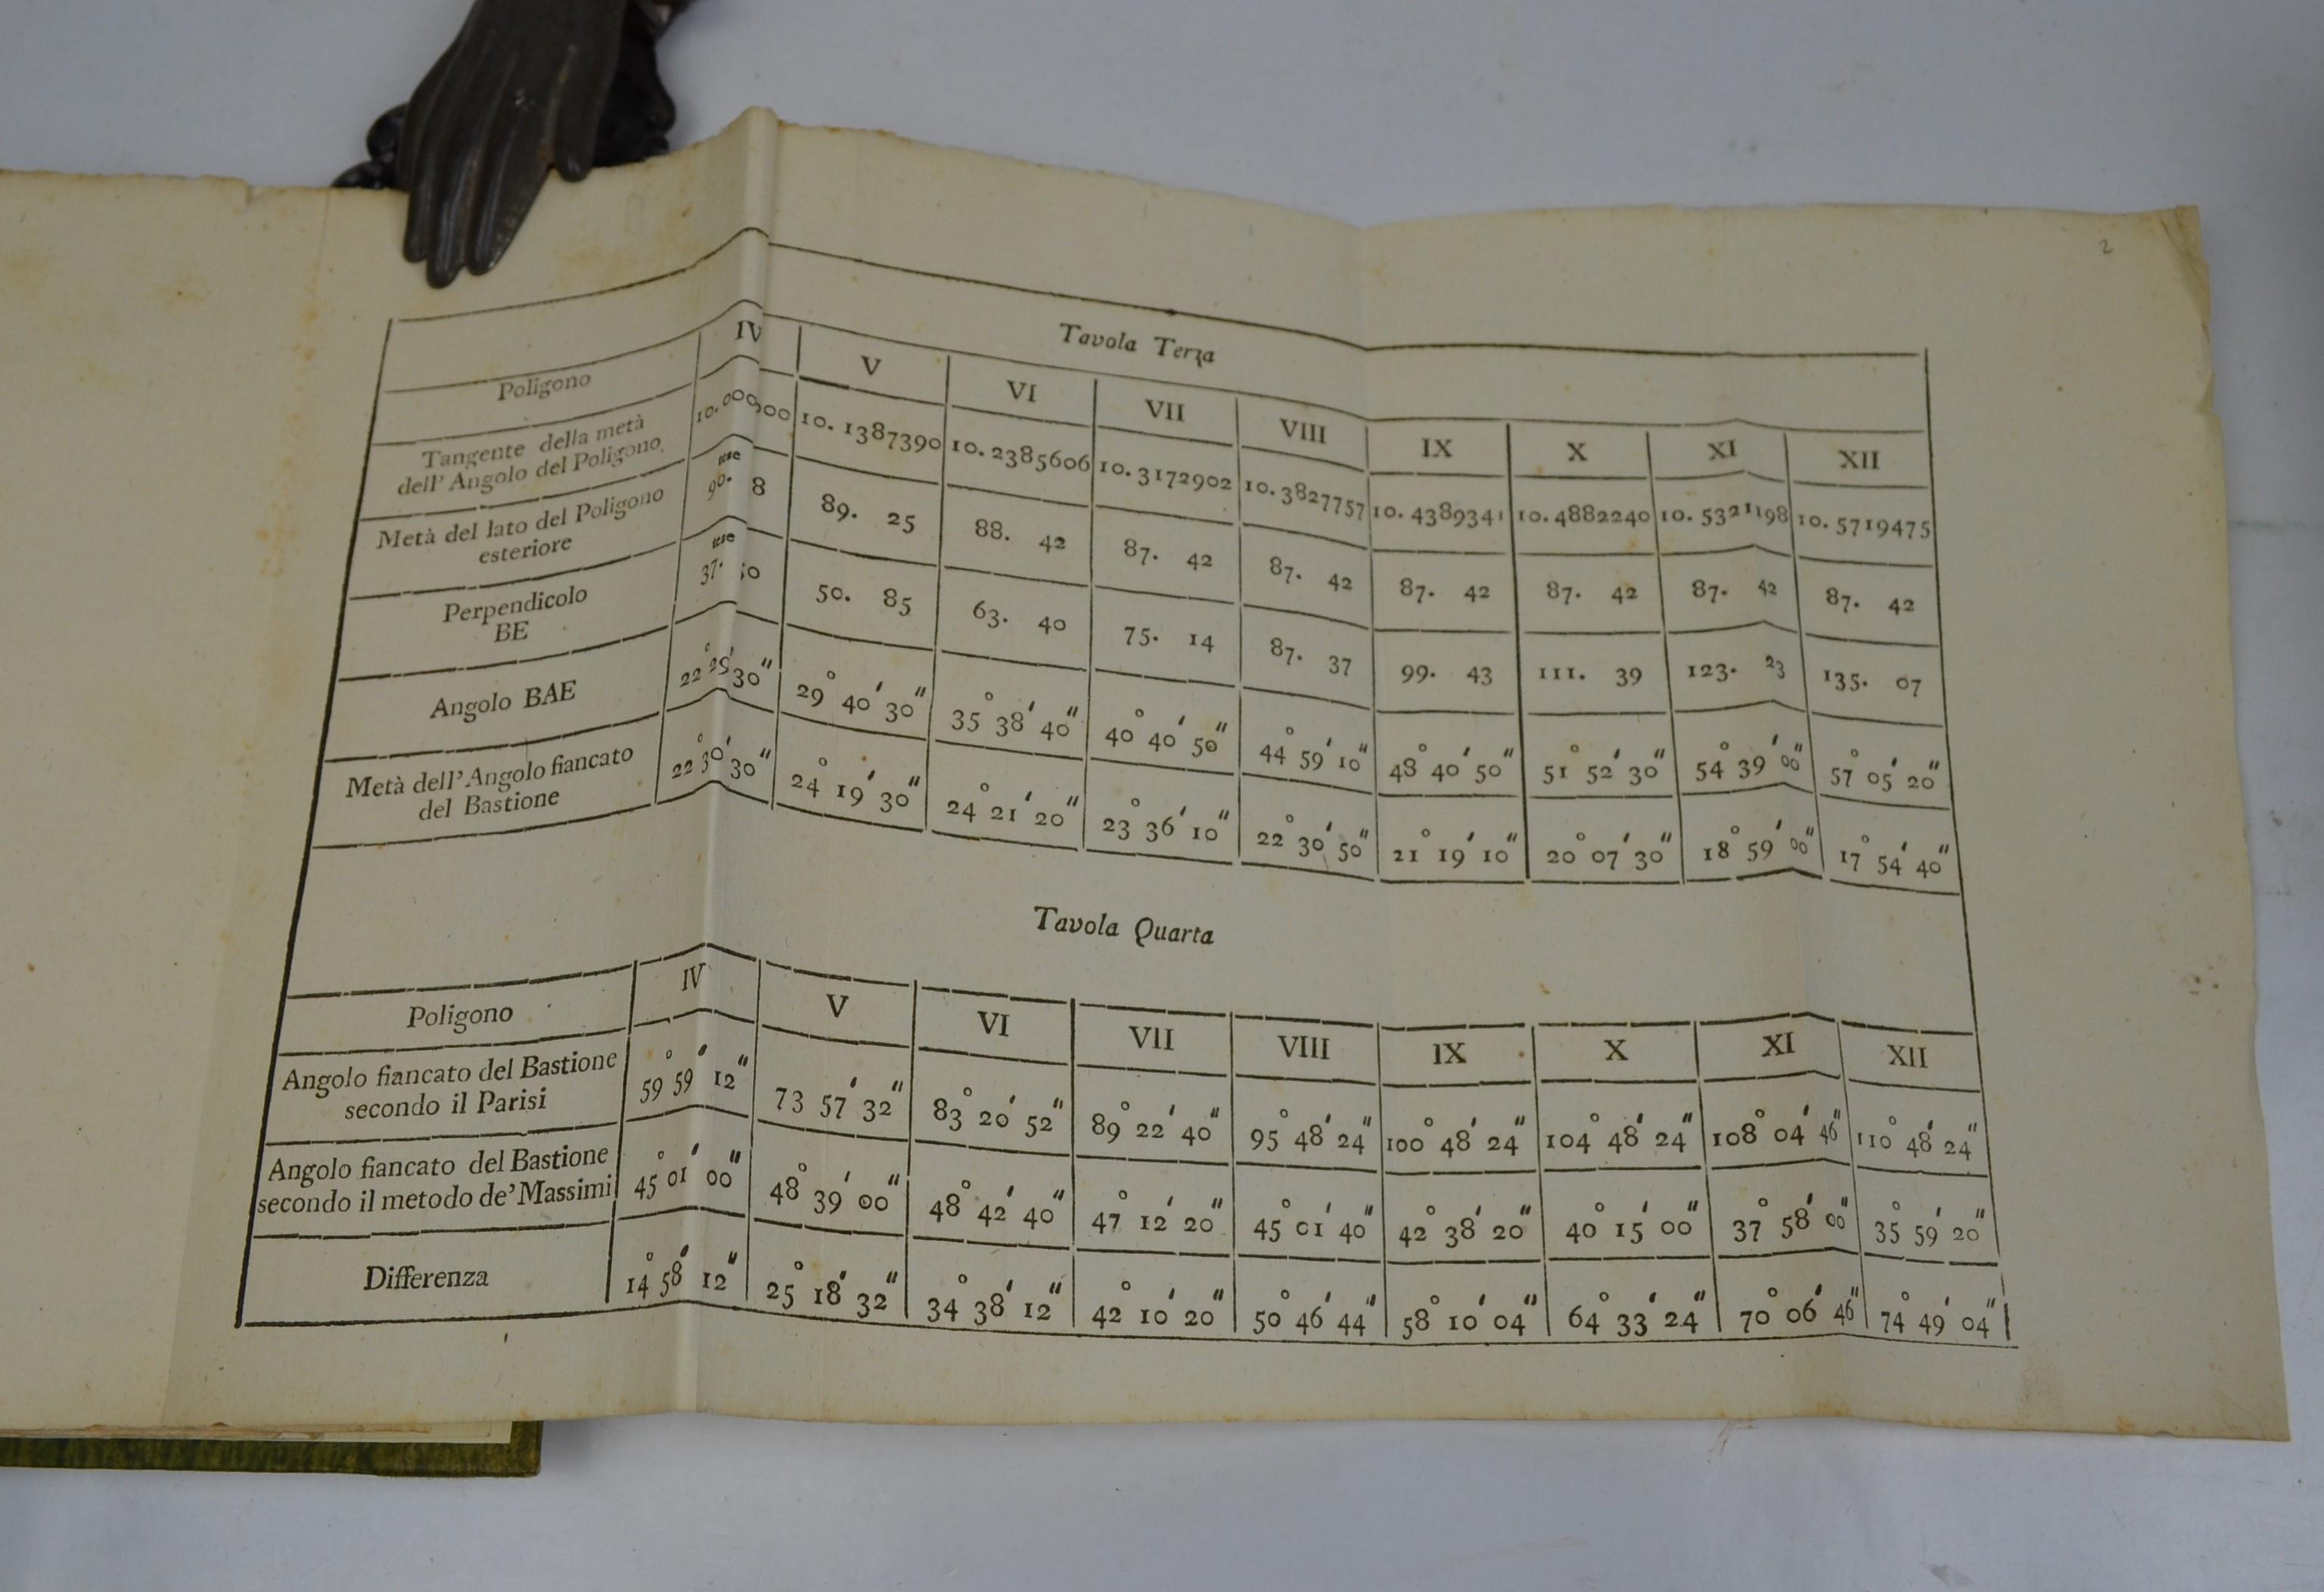 2
Tavola Terza
Poligono IV V VI VII VIII IX X XI XII
Tangente della metà
dell' Angolo del Poligono 10. 1387390 10. 2385606 10. 3172902 10. 3827757 10. 438934¹ 10. 4882240 10. 5321198 10. 5719475
Metà del lato del Poligono
esteriore tese 90. 8 89. 25 88. 42 87. 42 87. 42 87. 42 87. 42 87. 42 87. 42
Perpendicolo
BE tese 37. 50. 85 63. 40 75. 14 87. 37 99. 43 111. 39 123. 23 135. 07
Angolo BAE 22° 29' 30" 29° 40' 30" 35° 38' 40" 40° 40' 50" 44° 59' 10" 48° 40' 50" 51° 52' 30" 54° 39' 00" 57° 05' 20"
Metà dell' Angolo fiancato
del Bastione 22° 30' 30" 24° 19' 30" 24° 21' 20" 23° 36' 10" 22° 30' 50" 21° 19' 10" 20° 07' 30" 18° 59' 00" 17° 54' 40"
Tavola Quarta
Poligono IV V VI VII VIII IX X XI XII
Angolo fiancato del Bastione
secondo il Parisi 59° 59' 12" 73 57' 32" 83° 20' 52" 89° 22' 40" 95° 48' 24" 100° 48' 24" 104° 48' 24" 108° 04' 46" 110° 48' 24"
Angolo fiancato del Bastione
secondo il metodo de' Massimi 45° 01' 00" 48° 39' 00" 48° 42' 40" 47° 12' 20" 45° 01' 40" 42° 38' 20" 40° 15' 00" 37° 58' 00" 35° 59' 20"
Differenza 14° 58' 12" 25° 18' 32" 34° 38' 12" 42° 10' 20" 50° 46' 44" 58° 10' 04" 64° 33' 24" 70° 06' 46" 74° 49' 04"